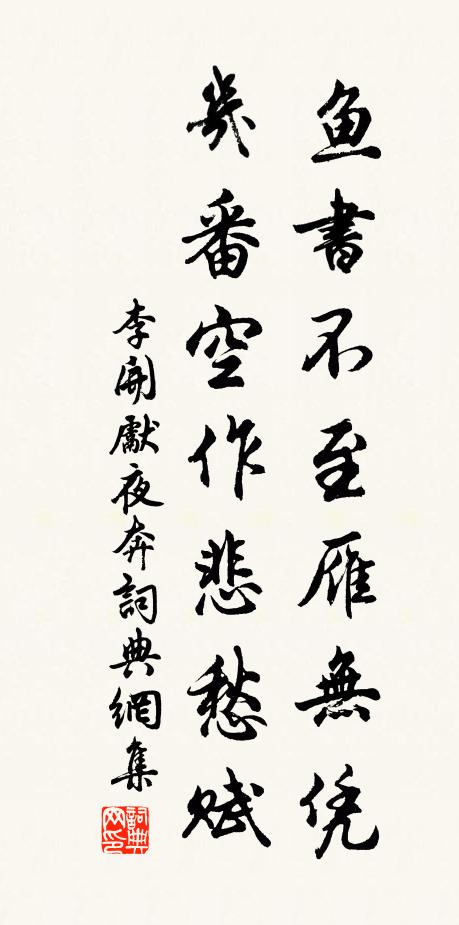 鱼書不至雁無凭
幾番空作悲愁賦
李開獻夜奔詞典網集
詞典網印